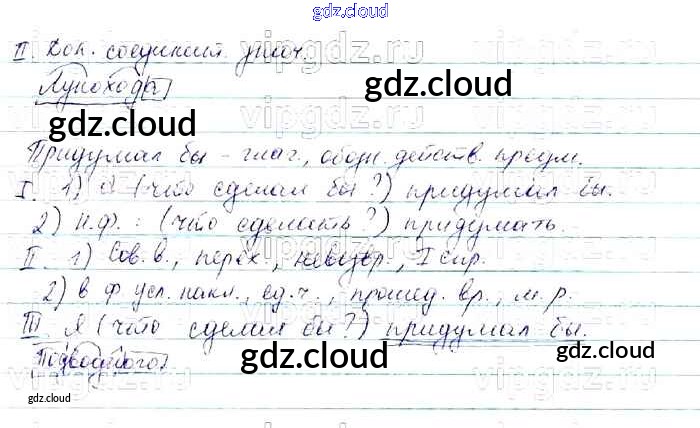 gdz.cloud
II. Доп. соединит. знач.
Лунохода
gdz.cloud
gdz.cloud
Придумал бы - глаг., обозн действ. предм.
I. 1) Я (что сделал бы?) придумал бы.
2) Н.ф.: (что сделать?) придумать.
II. 1) Сов.в., перех., невозвр., I спр.
2) в ф усл. накл., ед.ч., прошед. вр., м.р.
III Я (что сделал бы?) придумал бы.
Подводного
gdz.cloud
gdz.cloud
gdz.cloud